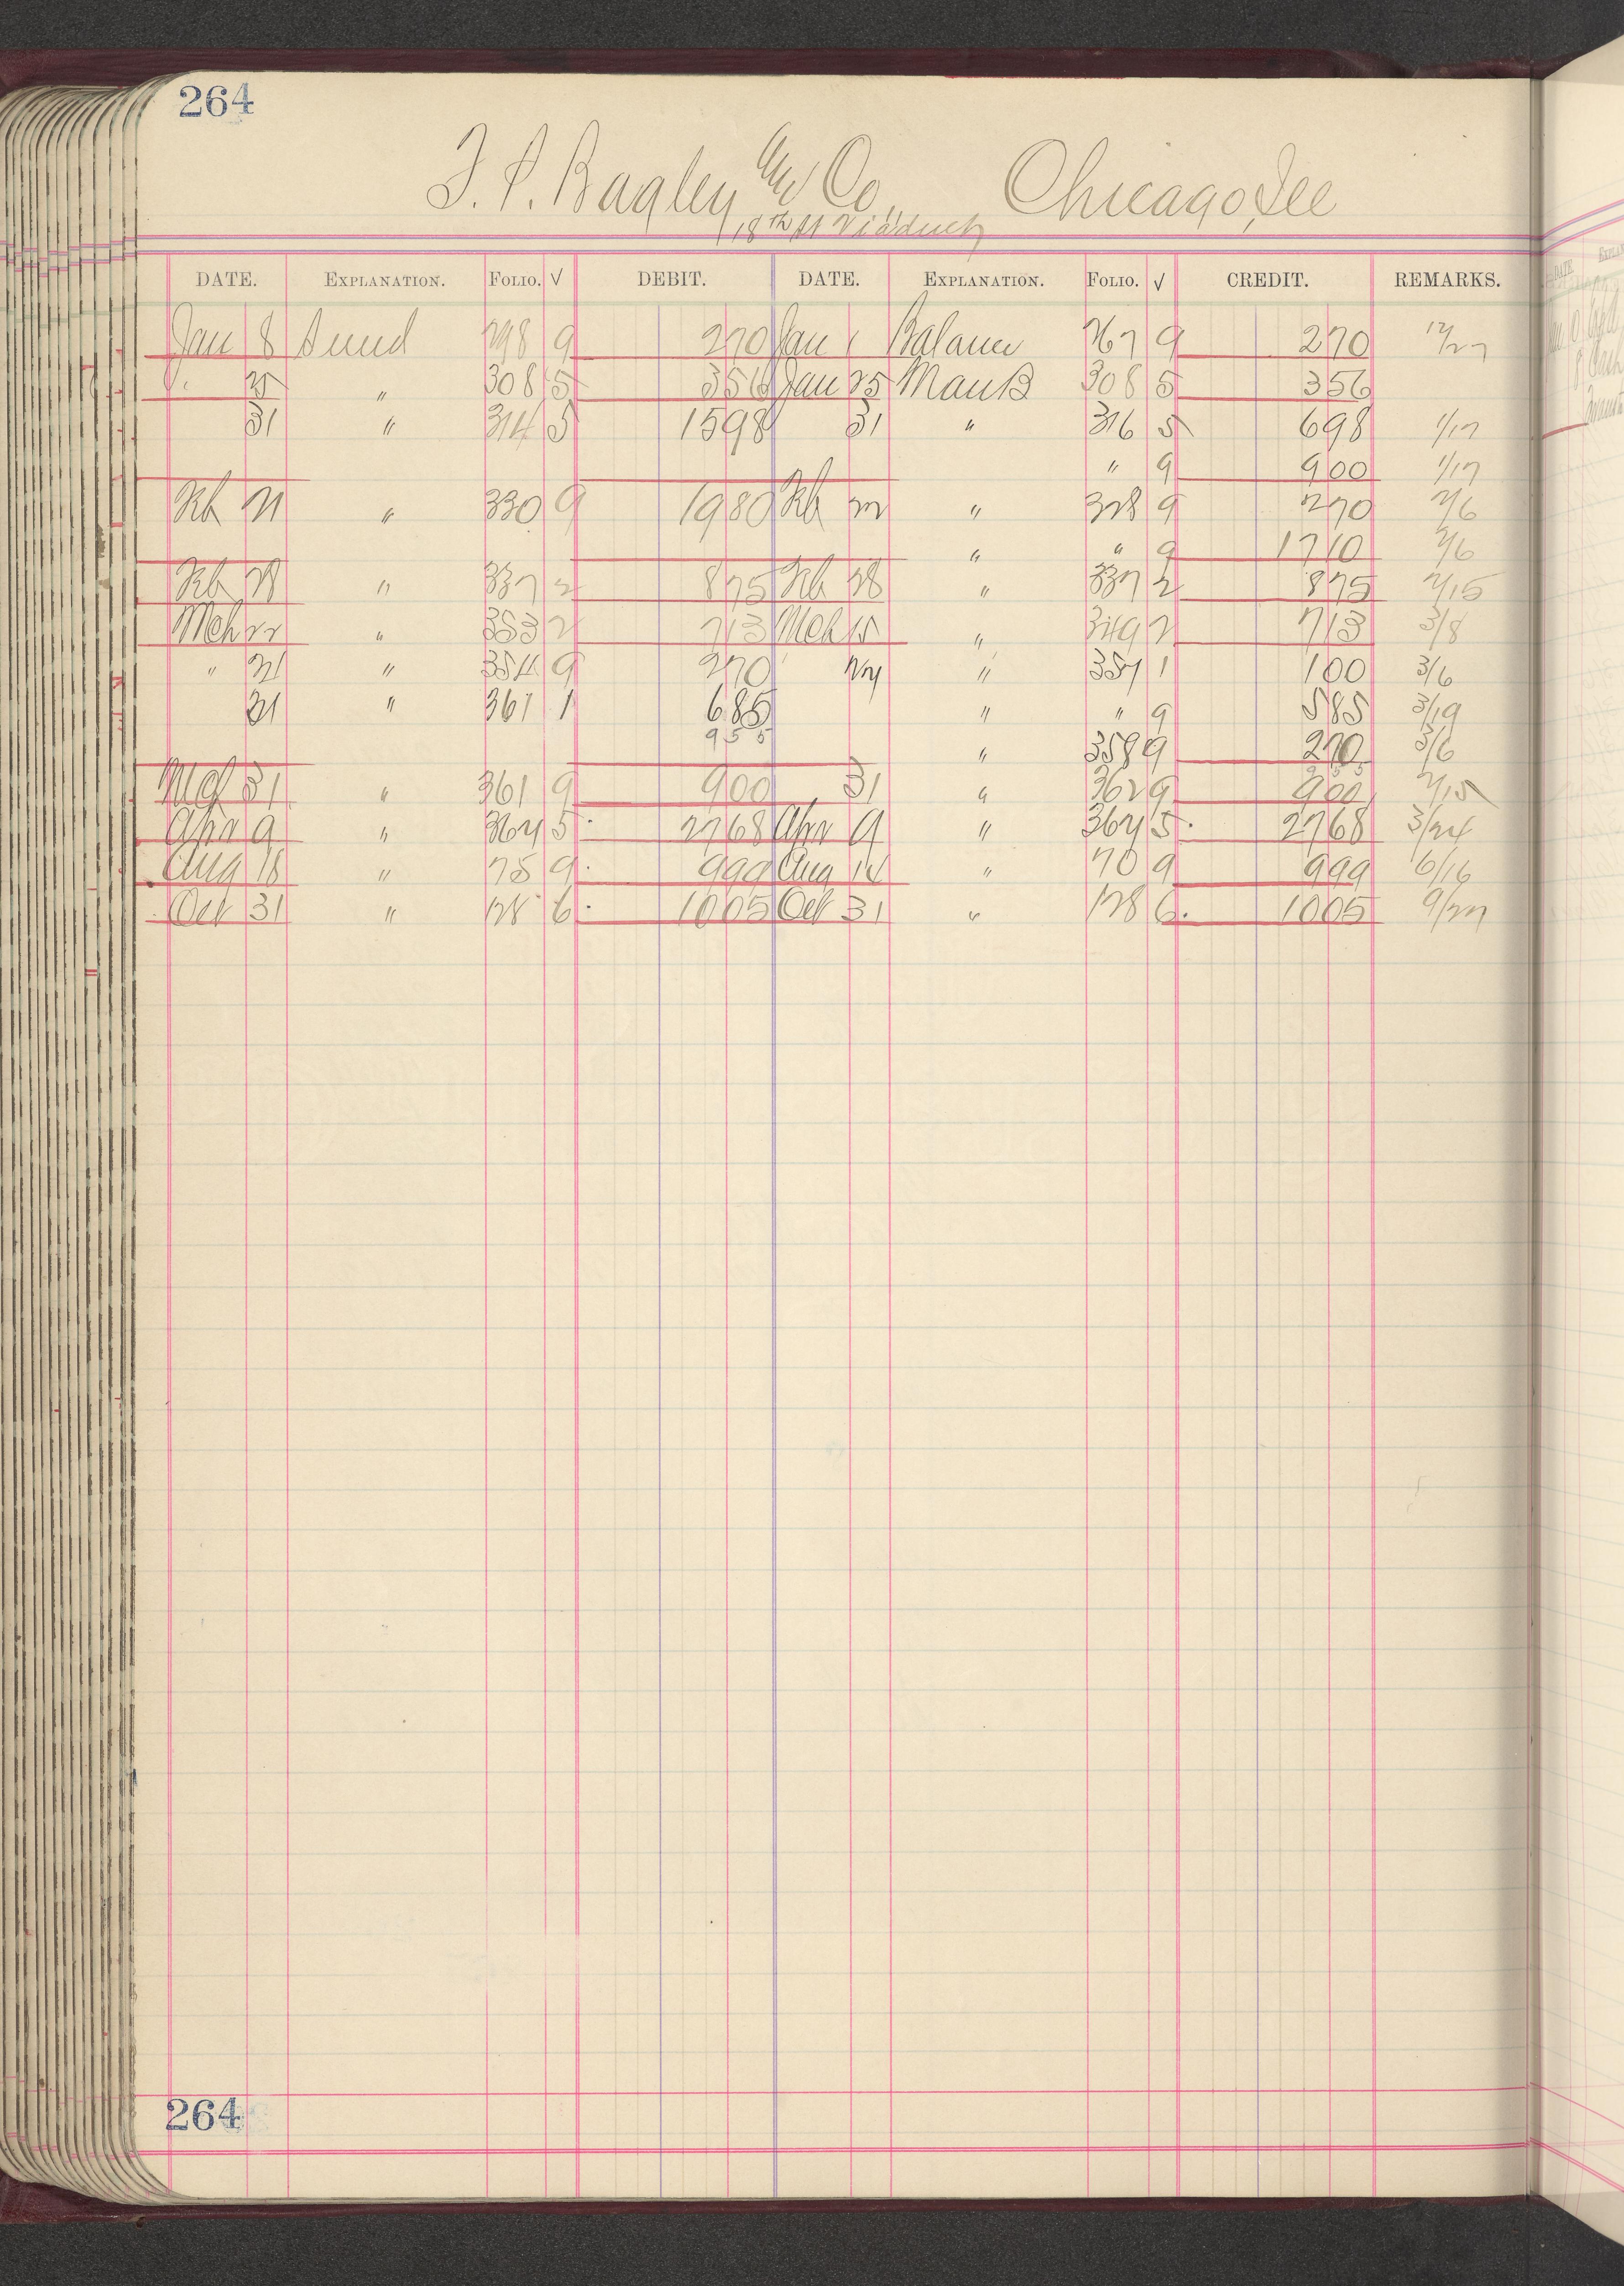 264
J. P. Bagley & Co. Chicago, Ill
18th St Viaduct
DATE. EXPLANATION. FOLIO. √ DEBIT. DATE. EXPLANATION. FOLIO. √ CREDIT. REMARKS.
Jan 8 Sund 298 9 270 Jan 1 Balance 267 9 270 12/27
" 25 " 308 5 356 Jan 25 Man B 308 5 356
31 " 314 5 1598 31 " 316 5 698 1/17
" 9 900 1/17
Feb 21 " 330 9 1980 Feb 22 " 328 9 270 2/6
" " 9 1710 2/6
Feb 28 " 337 2 875 Feb 28 " 337 2 875 2/15
Mch 22 " 353 2 713 Mch 15 " 349 2 713 3/8
" 21 " 354 9 270 " 351 1 100 3/6
31 " 361 1 685 " " 9 585 3/19
955 " 358 9 270 3/6
Mch 31 " 361 9 900 31 " 362 9 900 2/15
Apr 9 " 364 5 2768 Apr 9 " 364 5 2768 3/24
Aug 18 " 75 9 999 Aug 14 " 70 9 999 6/16
Oct 31 " 128 6 1005 Oct 31 " 128 6 1005 9/27
264